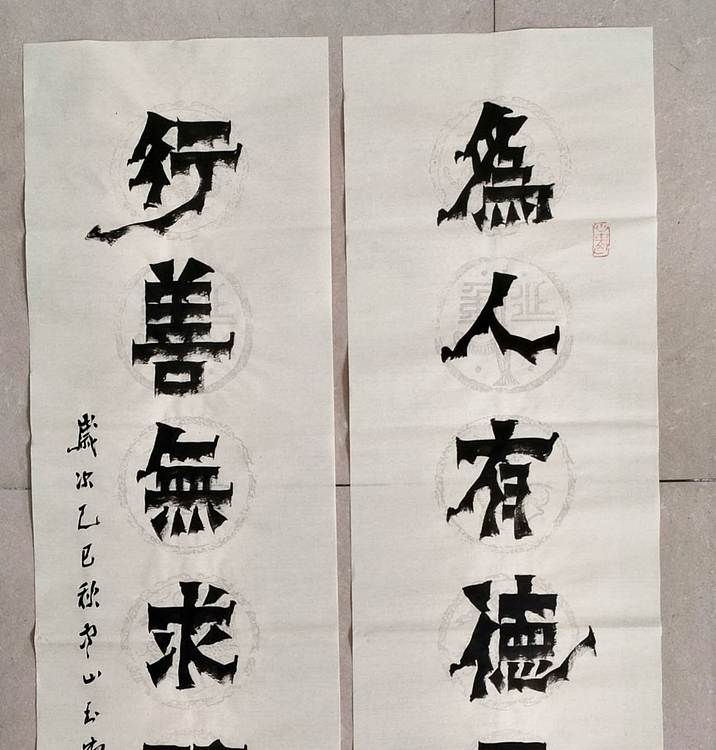 為人有德
行善無求
歲次乙巳秋
山